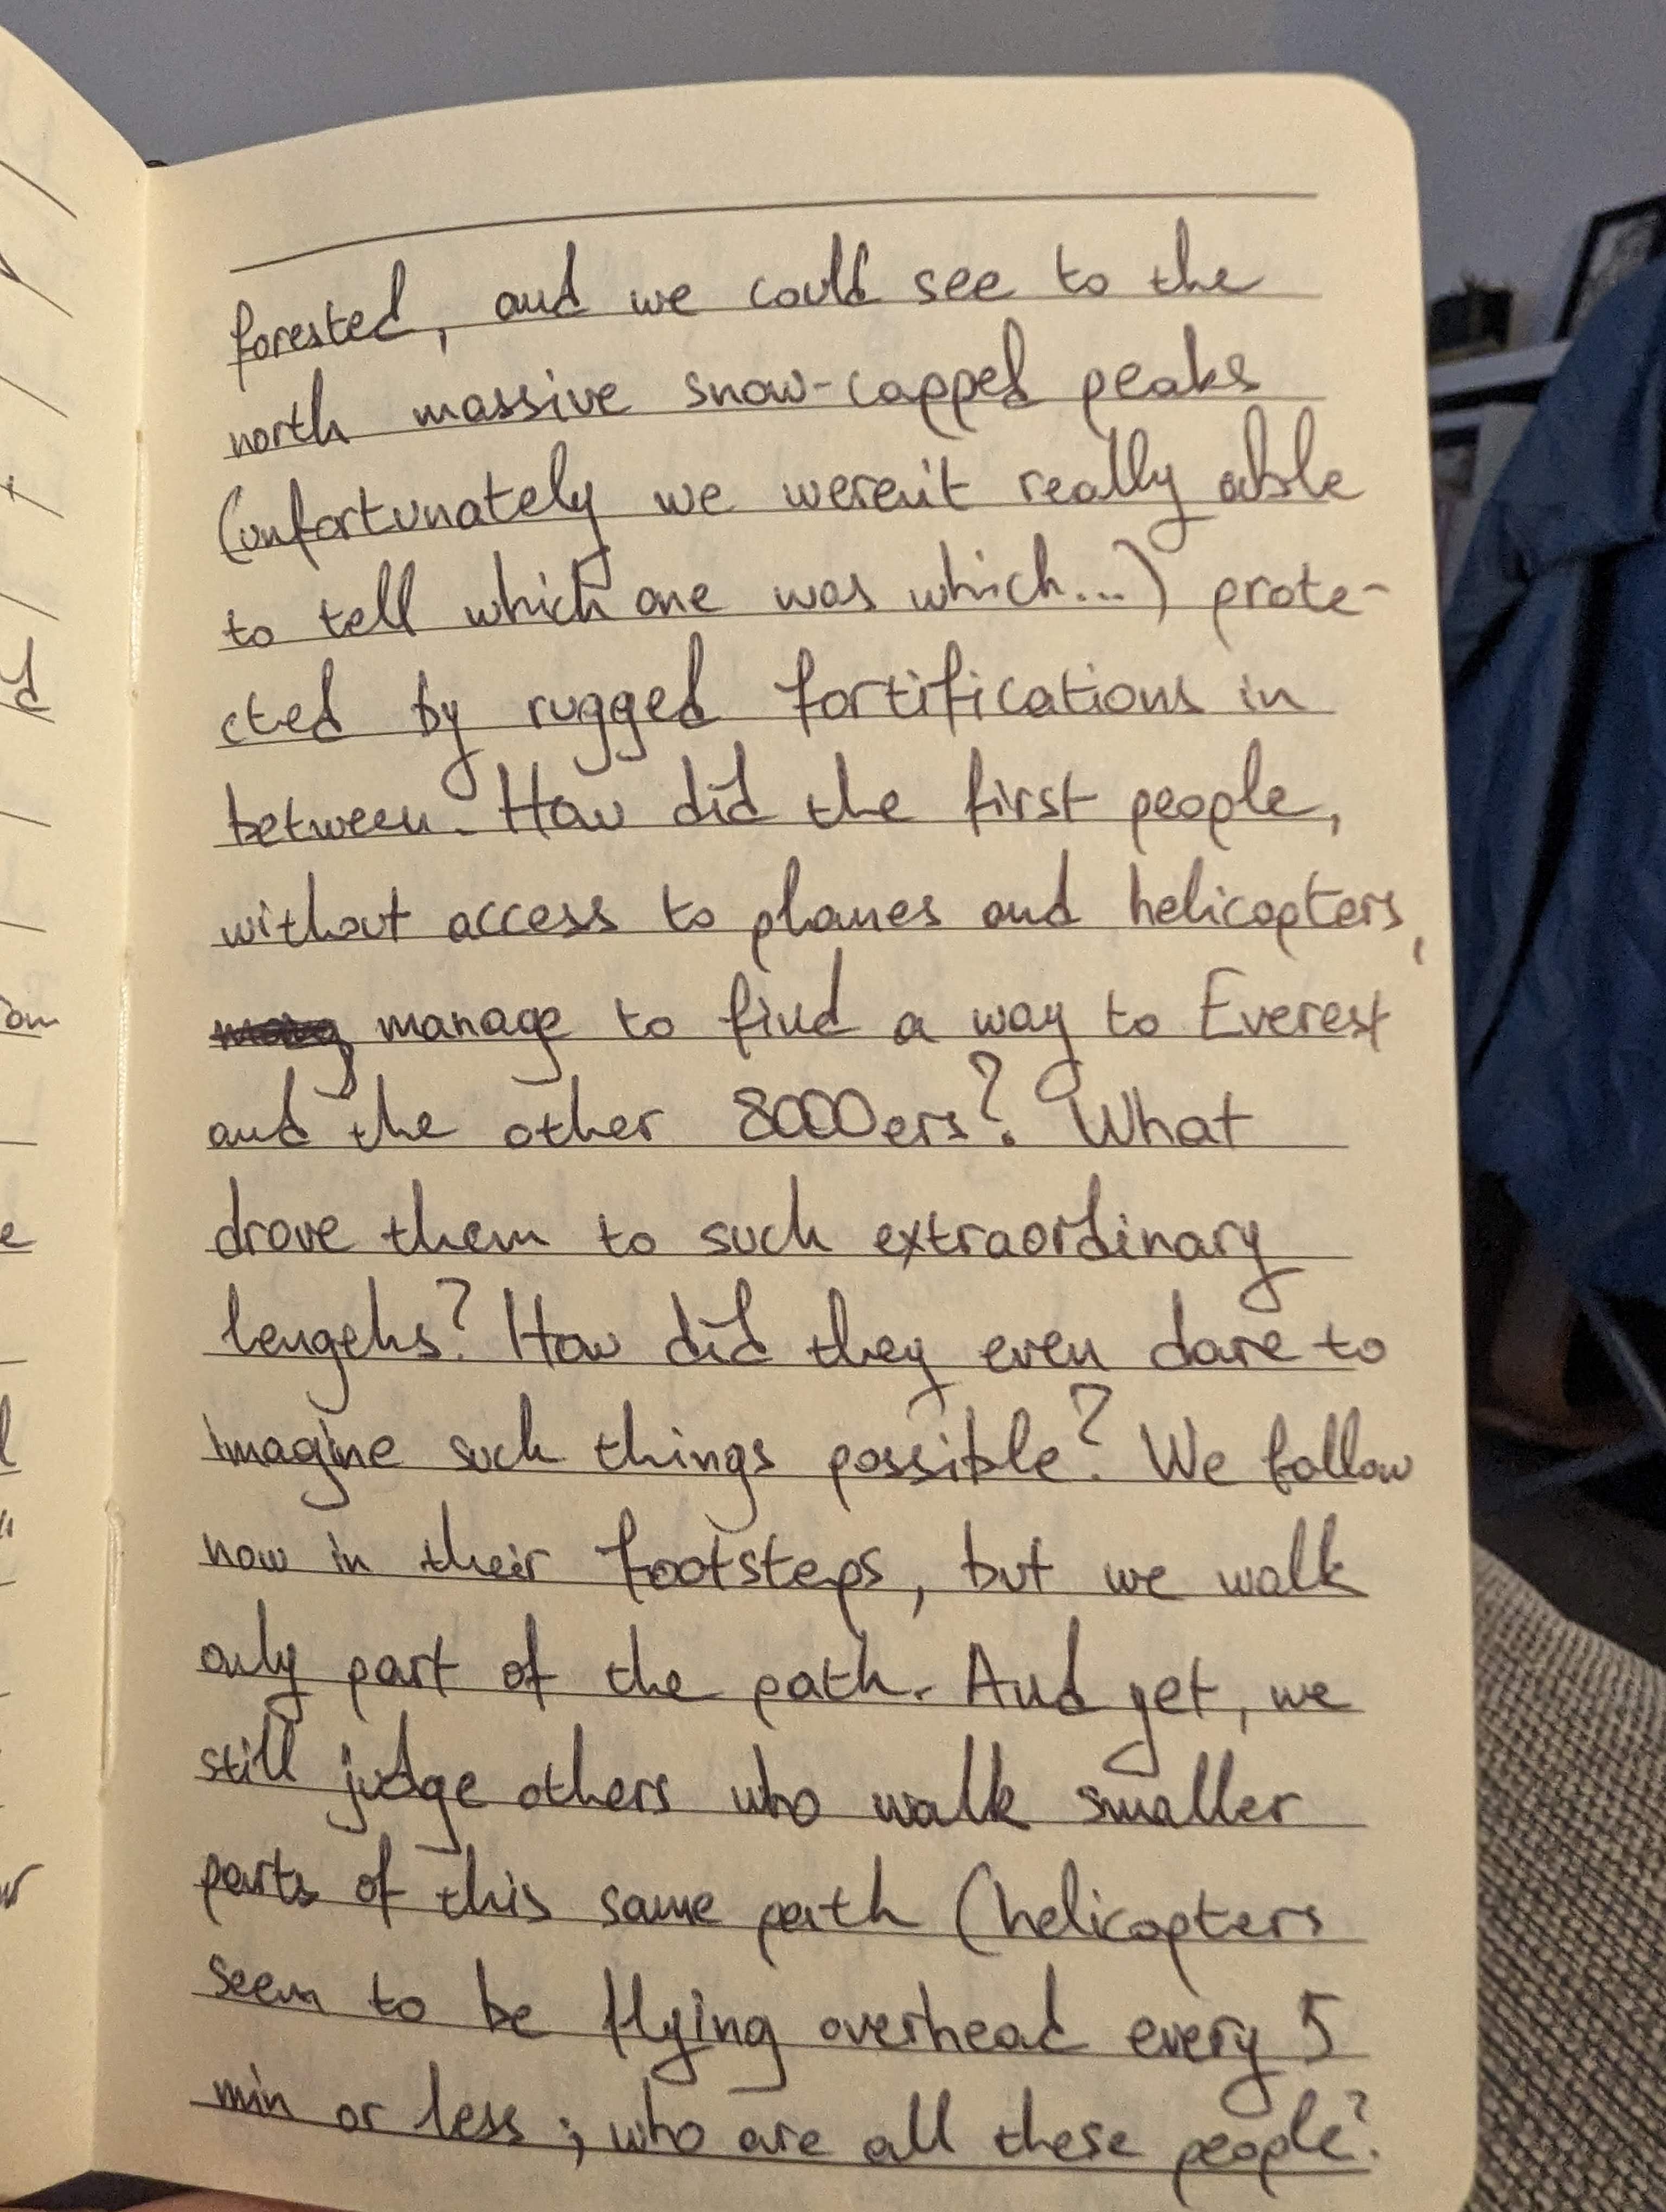 forested, and we could see to the
north massive snow-capped peaks
(unfortunately we weren't really able
to tell which one was which...) prote-
cted by rugged fortifications in
between. How did the first people,
without access to planes and helicopters,
manage to find a way to Everest
and the other 8000ers? What
drove them to such extraordinary
lengths? How did they even dare to
imagine such things possible? We follow
now in their footsteps, but we walk
only part of the path. And yet, we
still judge others who walk smaller
parts of this same path (helicopters
seem to be flying overhead every 5
min or less; who are all these people?